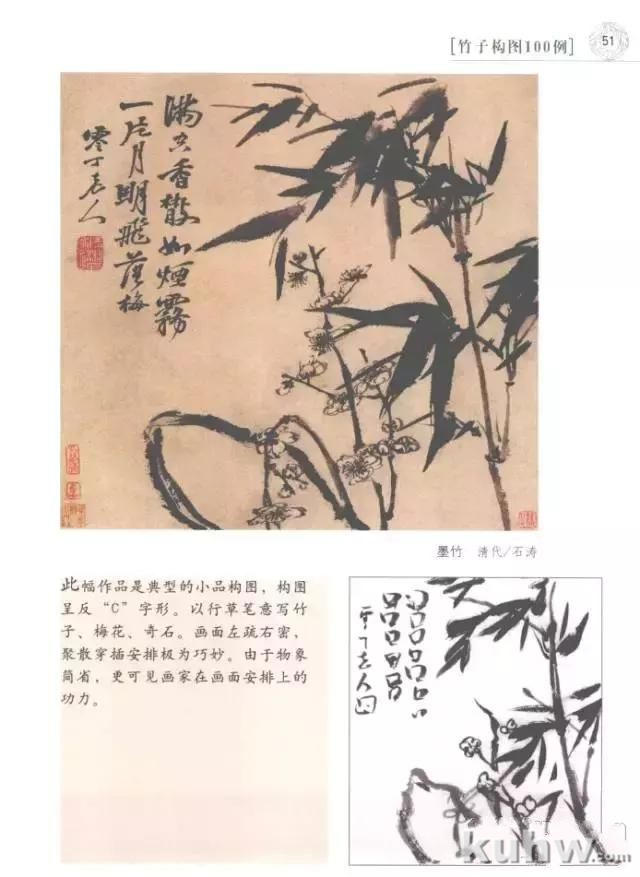 [竹子构图100例]
51
满空香散如烟雾
一片月明飛落梅
零丁老人
墨竹 清代/石涛
此幅作品是典型的小品构图，构图
呈反“C”字形。以行草笔意写竹
子、梅花、奇石。画面左疏右密，
聚散穿插安排极为巧妙。由于物象
简省，更可见画家在画面安排上的
功力。
零丁老人
kuhw.com